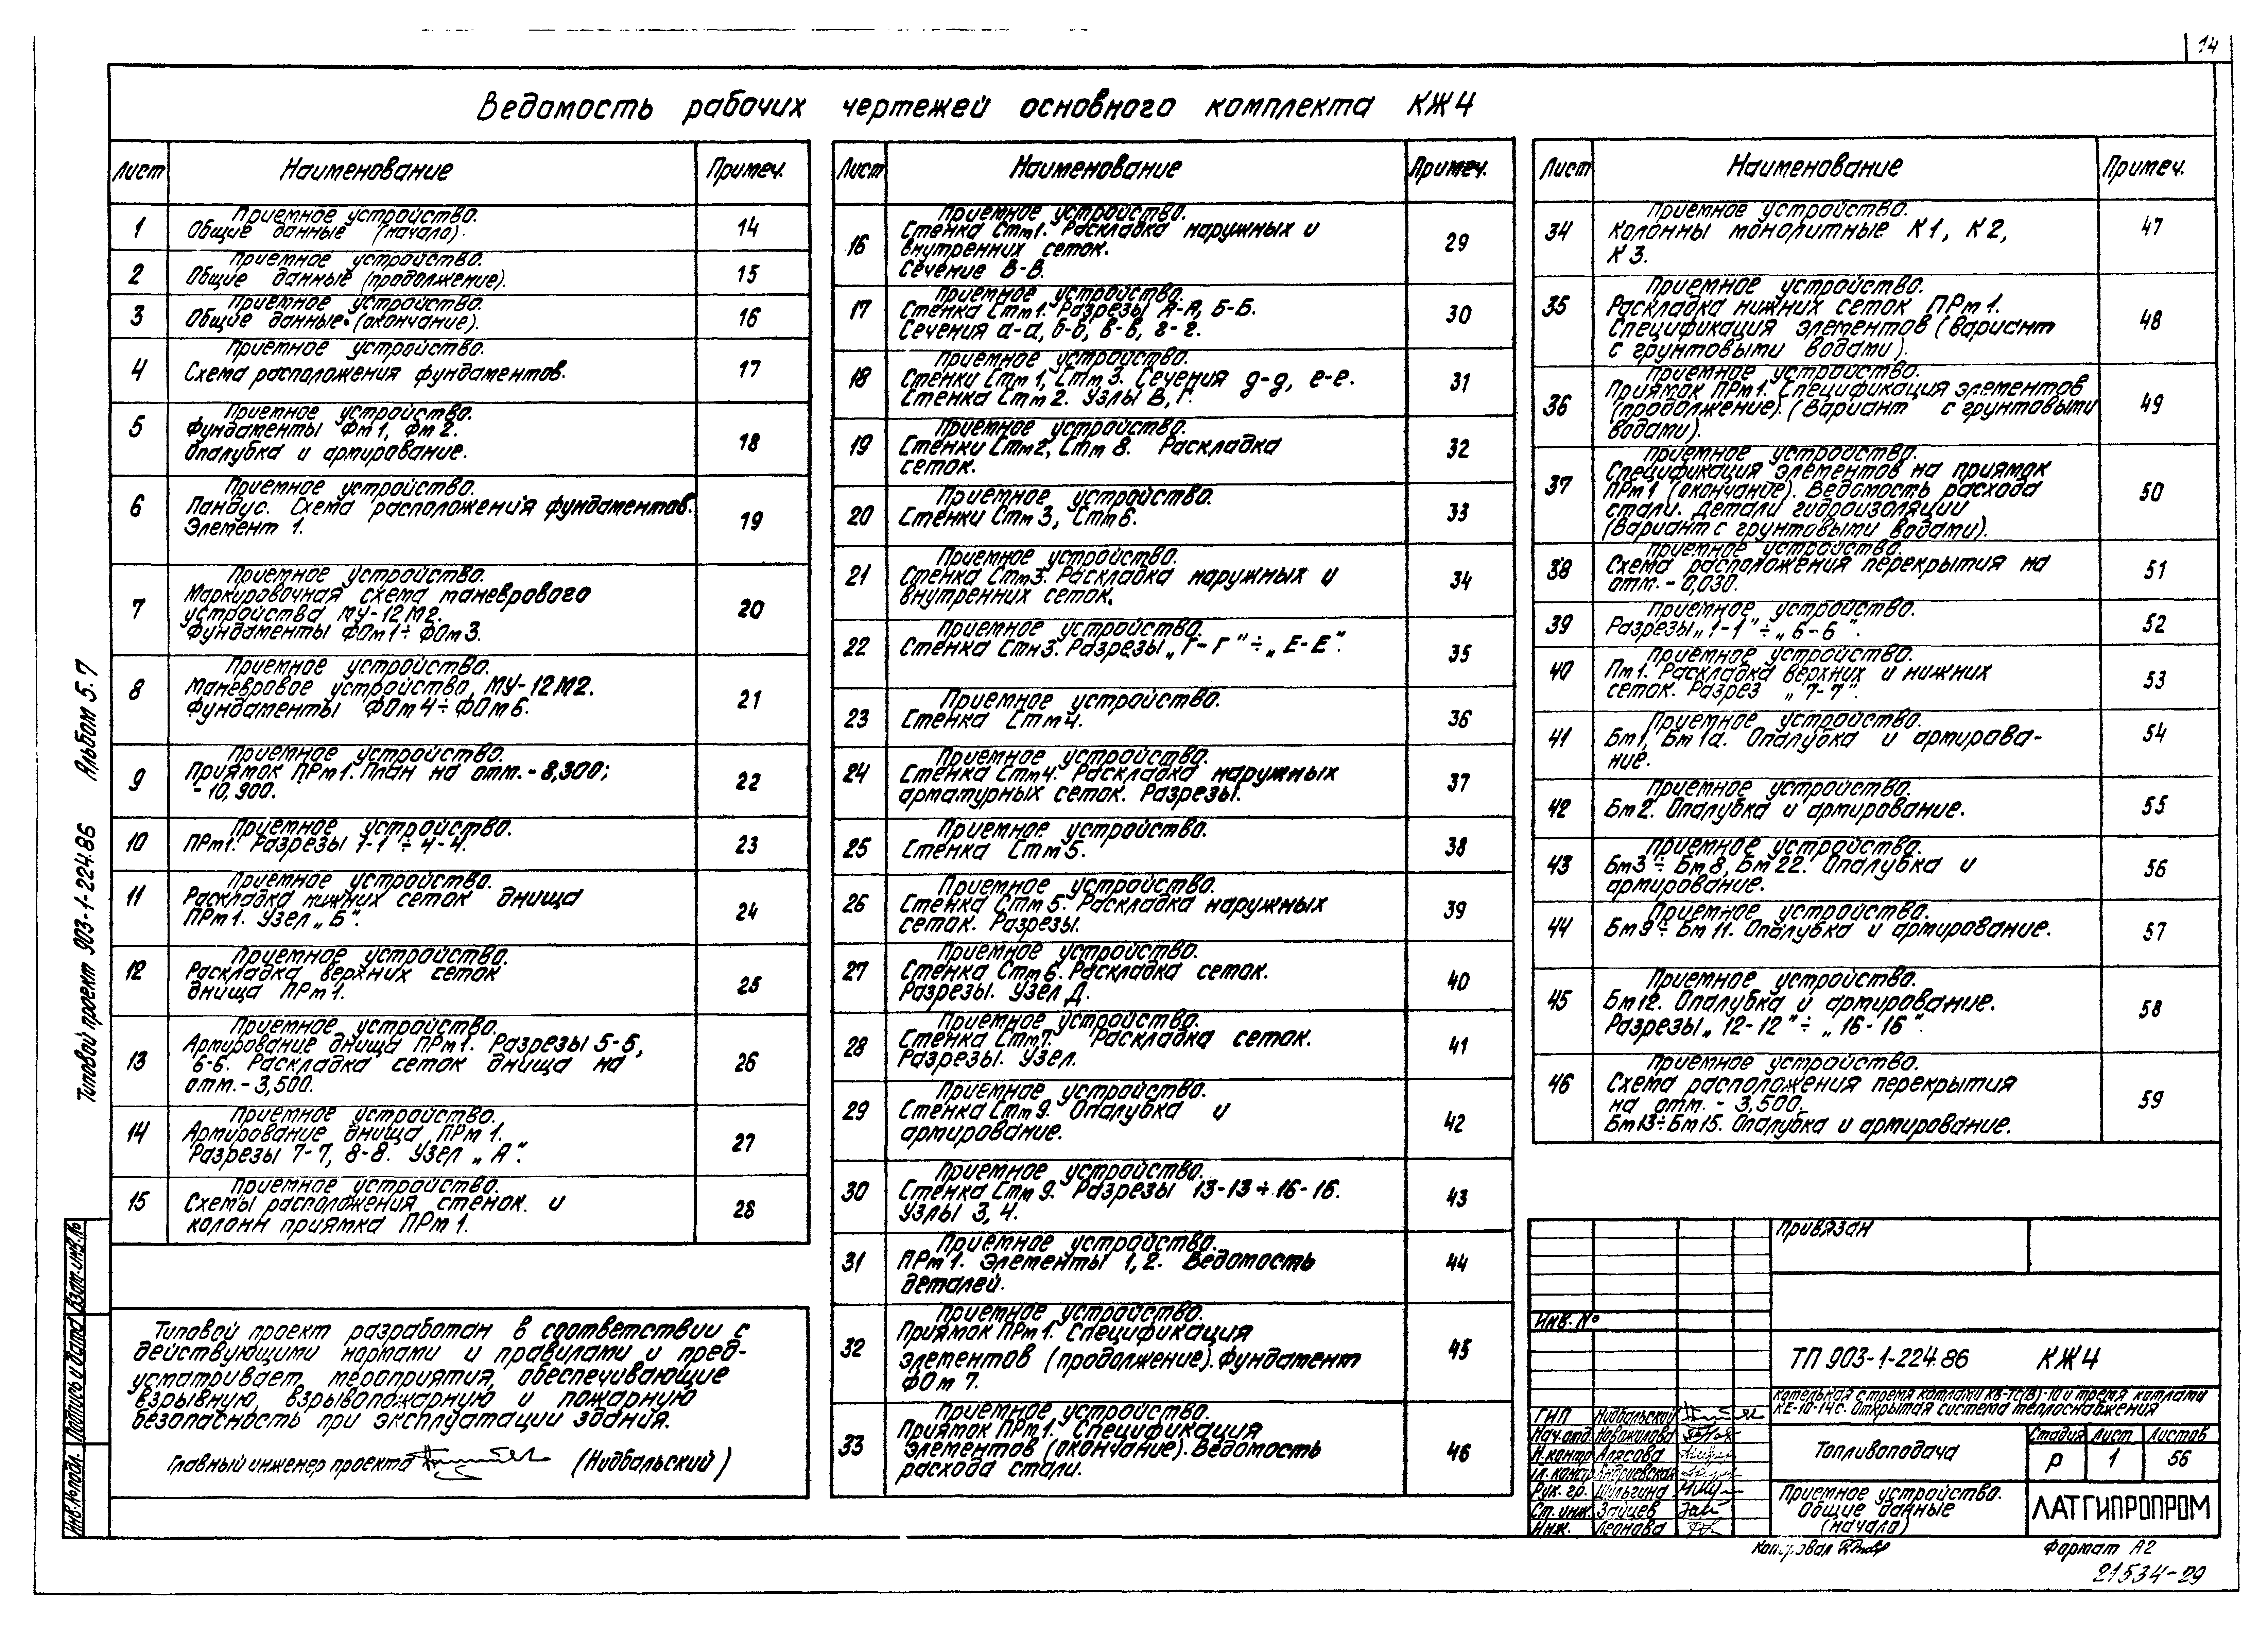 14
Ведомость рабочих чертежей основного комплекта КЖ4
Лист Наименование Примеч.
1 Приемное устройство. Общие данные (начало). 14
2 Приемное устройство. Общие данные (продолжение). 15
3 Приемное устройство. Общие данные. (окончание). 16
4 Приемное устройство. Схема расположения фундаментов. 17
5 Приемное устройство. Фундаменты Фм1, Фм2. Опалубка и армирование. 18
6 Приемное устройство. Пандус. Схема расположения фундаментов. Элемент 1. 19
7 Приемное устройство. Маркировочная схема маневрового устройства МУ-12М2. Фундаменты ФОм1÷ФОм3. 20
8 Приемное устройство. Маневровое устройство МУ-12М2. Фундаменты ФОм4÷ФОм6. 21
9 Приемное устройство. Приямок ПРм1. План на отм.-8,300; -10,900. 22
10 Приемное устройство. ПРм1. Разрезы 1-1÷4-4. 23
11 Приемное устройство. Раскладка нижних сеток днища ПРм1. Узел „Б". 24
12 Приемное устройство. Раскладка верхних сеток днища ПРм1. 25
13 Приемное устройство. Армирование днища ПРм1. Разрезы 5-5, 6-6. Раскладка сеток днища на отм.-3,500. 26
14 Приемное устройство. Армирование днища ПРм1. Разрезы 7-7, 8-8. Узел „А". 27
15 Приемное устройство. Схемы расположения стенок и колонн приямка ПРм1. 28
Типовой проект разработан в соответствии с
действующими нормами и правилами и пред-
усматривает мероприятия, обеспечивающие
взрывную, взрывопожарную и пожарную
безопасность при эксплуатации здания.
Главный инженер проекта (Нидбальский)
Лист Наименование Примеч.
16 Приемное устройство. Стенка Стм1. Раскладка наружных и внутренних сеток. Сечение В-В. 29
17 Приемное устройство. Стенка Стм1. Разрезы А-А, Б-Б. Сечения а-а, б-б, в-в, г-г. 30
18 Приемное устройство. Стенки Стм1, Стм3. Сечения д-д, е-е. Стенка Стм2. Узлы В, Г. 31
19 Приемное устройство. Стенки Стм2, Стм8. Раскладка сеток. 32
20 Приемное устройство. Стенки Стм3, Стм6. 33
21 Приемное устройство. Стенка Стм3. Раскладка наружных и внутренних сеток. 34
22 Приемное устройство. Стенка Стн3. Разрезы „Г-Г"÷„Е-Е". 35
23 Приемное устройство. Стенка Стм4. 36
24 Приемное устройство. Стенка Стм4. Раскладка наружных арматурных сеток. Разрезы. 37
25 Приемное устройство. Стенка Стм5. 38
26 Приемное устройство. Стенка Стм5. Раскладка наружных сеток. Разрезы. 39
27 Приемное устройство. Стенка Стм6. Раскладка сеток. Разрезы. Узел Д. 40
28 Приемное устройство. Стенка Стм7. Раскладка сеток. Разрезы. Узел. 41
29 Приемное устройство. Стенка Стм9. Опалубка и армирование. 42
30 Приемное устройство. Стенка Стм9. Разрезы 13-13÷16-16. Узлы 3, 4. 43
31 Приемное устройство. ПРм1. Элементы 1, 2. Ведомость деталей. 44
32 Приемное устройство. Приямок ПРм1. Спецификация элементов (продолжение). Фундамент ФОм7. 45
33 Приемное устройство. Приямок ПРм1. Спецификация элементов (окончание). Ведомость расхода стали. 46
Лист Наименование Примеч.
34 Приемное устройство. Колонны монолитные К1, К2, К3. 47
35 Приемное устройство. Раскладка нижних сеток ПРм1. Спецификация элементов (Вариант с грунтовыми водами). 48
36 Приемное устройство. Приямок ПРм1. Спецификация элементов (продолжение). (Вариант с грунтовыми водами). 49
37 Приемное устройство. Спецификация элементов на приямок ПРм1 (окончание). Ведомость расхода стали. Детали гидроизоляции (Вариант с грунтовыми водами). 50
38 Приемное устройство. Схема расположения перекрытия на отм.-0,030. 51
39 Приемное устройство. Разрезы „1-1"÷„6-6". 52
40 Приемное устройство. Пм1. Раскладка верхних и нижних сеток. Разрез „7-7". 53
41 Приемное устройство. Бм1, Бм1а. Опалубка и армирова-ние. 54
42 Приемное устройство. Бм2. Опалубка и армирование. 55
43 Приемное устройство. Бм3÷Бм8, Бм22. Опалубка и армирование. 56
44 Приемное устройство. Бм9÷Бм11. Опалубка и армирование. 57
45 Приемное устройство. Бм12. Опалубка и армирование. Разрезы „12-12"÷„16-16". 58
46 Приемное устройство. Схема расположения перекрытия на отм. -3,500. Бм13÷Бм15. Опалубка и армирование. 59
Привязан
Инв. №
ТП 903-1-224.86 КЖ4
Котельная с тремя котлами КВ-ТС(В)-10 и тремя котлами
КЕ-10-14с. Открытая система теплоснабжения
ГИП Нидбальский
Нач.отд. Новожилова
Н.контр Алясова
Гл. констр Андриевская
Рук. гр. Шульгина
Ст. инж. Зайцев
Инж. Леонова
Топливоподача
Стадия Лист Листов
Р 1 56
Приемное устройство.
Общие данные
(начало)
ЛАТГИПРОПРОМ
Копировал
Формат А2
21534-29
Типовой проект 903-1-224.86 Альбом 5.7
Инв.№ подл. Подпись и дата Взам.инв.№